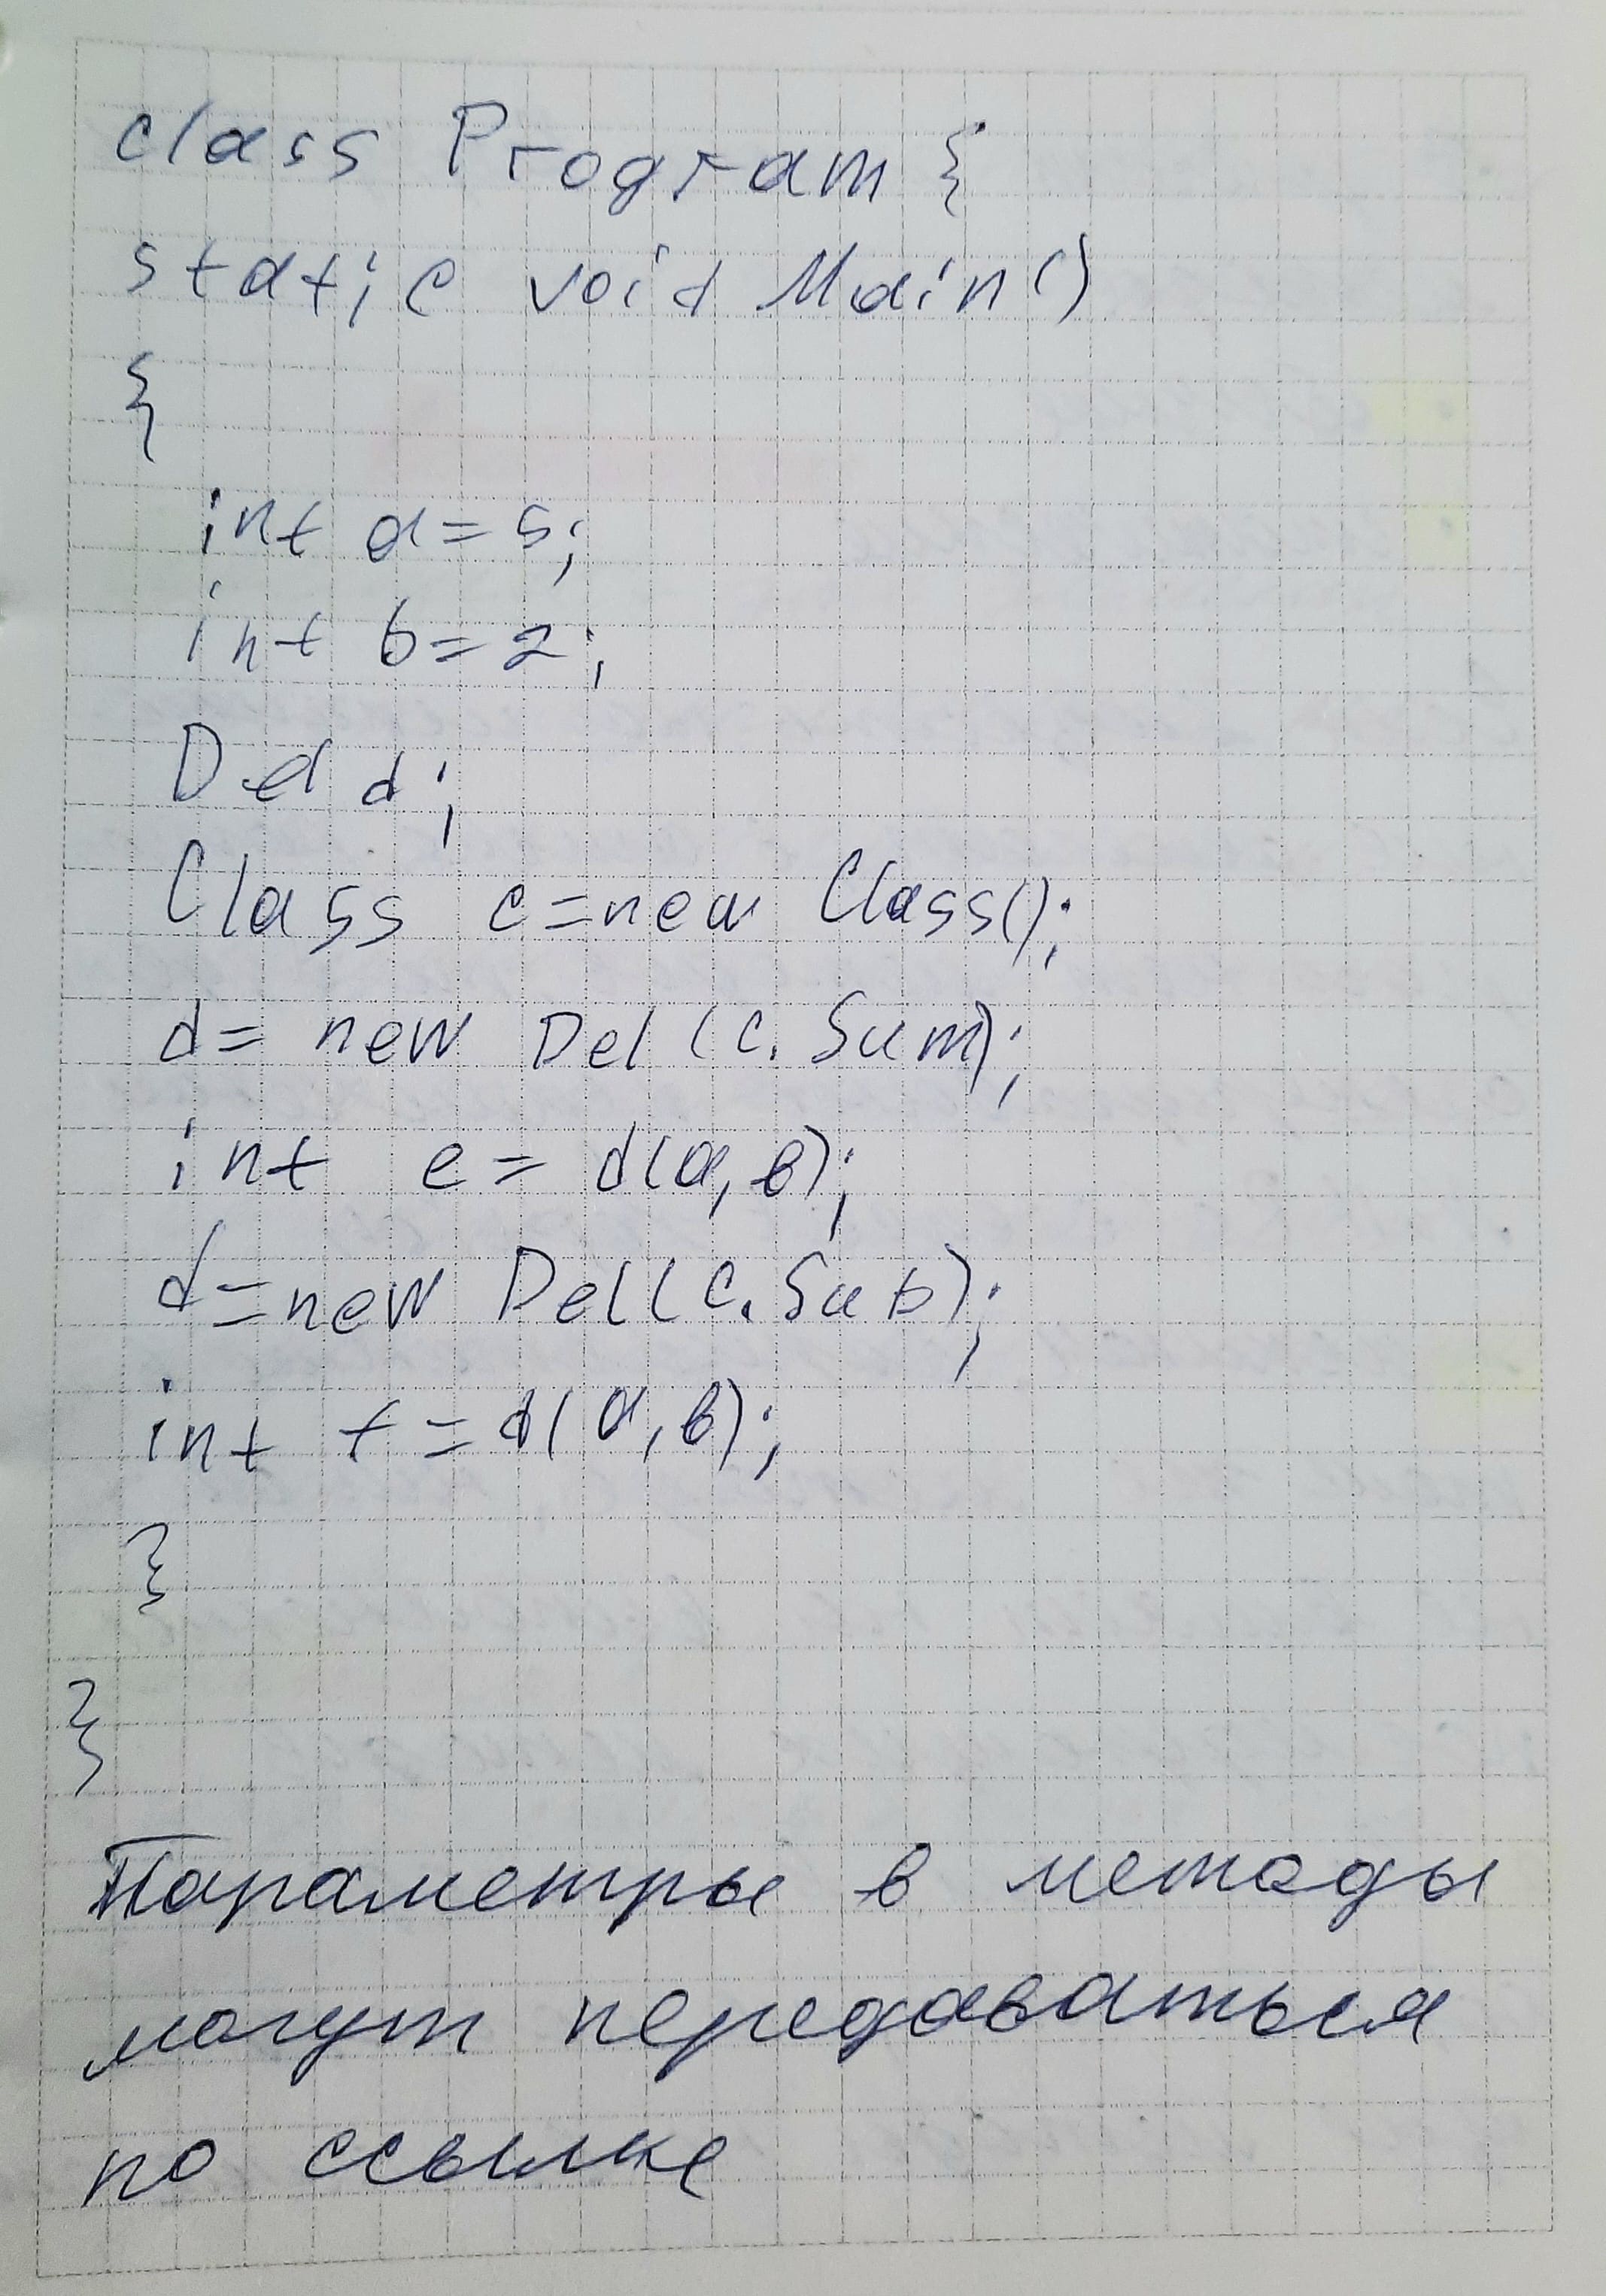 class Program {
static void Main()
{
int a = 5;
int b = 2;
Del d;
Class c = new Class();
d = new Del (c. Sum);
int e = d(a, b);
d = new Del (c. Sub);
int f = d(a, b);
}
}
Параметры в методы
могут передаваться
по ссылке